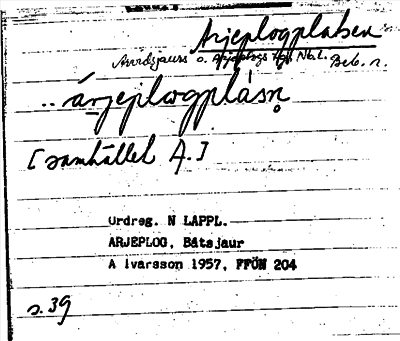 Arjeplogplatsen
Arvidsjaurs o. Arjeplogs tgl. Nb.l.
Beb. n.
..árjeplωgplásn̥
[samhället A.]
Ordreg. N LAPPL.
ARJEPLOG, Båtsjaur
A Ivarsson 1957, FFÖN 204
s. 39